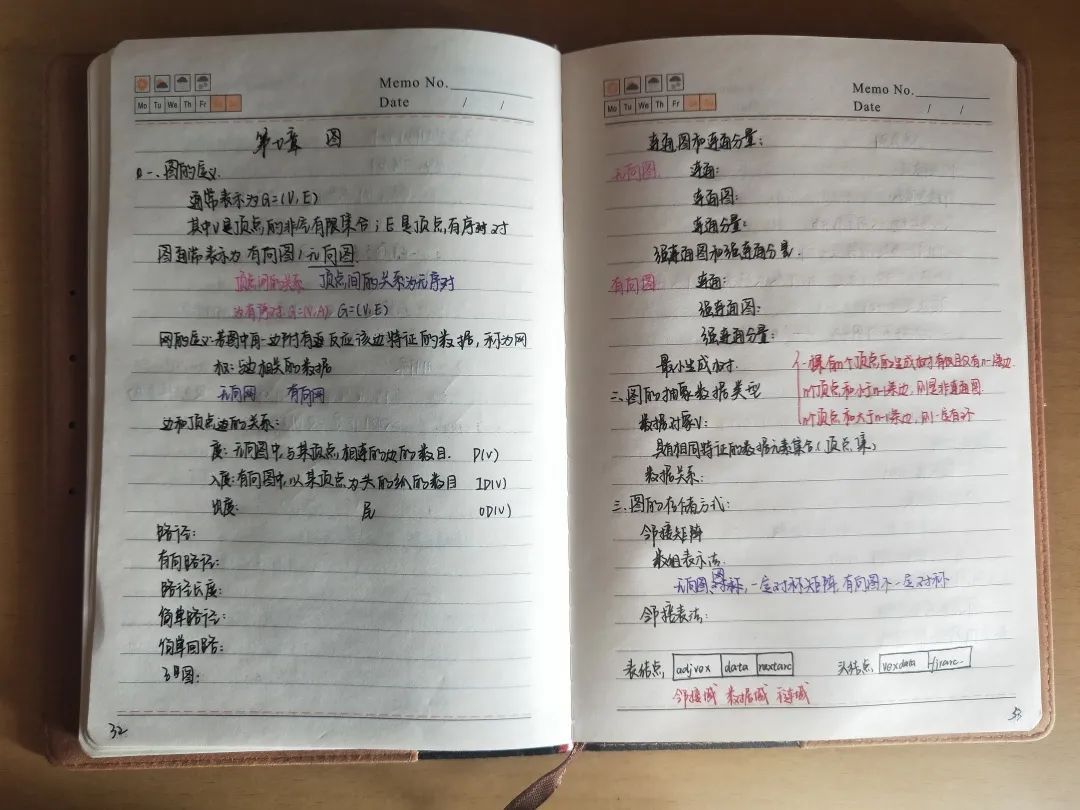 Memo No.
Mo Tu We Th Fr Sa Su
Date / /
第七章 图
一、图的定义
通常表示为G=(V,E)
其中V是顶点的非空有限集合;E是顶点,有序对 对
图通常表示为 有向图/无向图
顶点间的关系 顶点间的关系为无序对
为有序对 G=(V,A) G=(V,E)
网的定义:若图中每一边附有函反应该边特征的数据,称为网
权:与边相关的数据
无向网 有向网
边和顶点边的关系:
度:无向图中与某顶点相连的边的数目. D(v)
入度:有向图中,以某顶点为头的弧的数目 ID(v)
出度: 尾 OD(v)
路径:
有向路径:
路径长度:
简单路径:
简单回路:
子图:
32
Memo No.
Mo Tu We Th Fr Sa Su
Date / /
连通图和连通分量:
无向图 连通:
连通图:
连通分量:
强连通图和强连通分量.
有向图 连通:
强连通图:
强连通分量:
最小生成树: 一棵有n个顶点的生成树有仅且仅有n-1条边
n个顶点和小于n-1条边,则是非连通图
n个顶点和大于n-1条边,则一定有环
二、图的抽象数据类型
数据对象V:
具有相同特征的数据元素集合(顶点集)
数据关系:
三、图的存储方式:
邻接矩阵
数组表示法
无向图 对称,一定对称矩阵,有向图不一定对称
邻接表法:
表结点 adjvex data nextarc 头结点 vexdata firarc
邻接域 数据域 链域
33